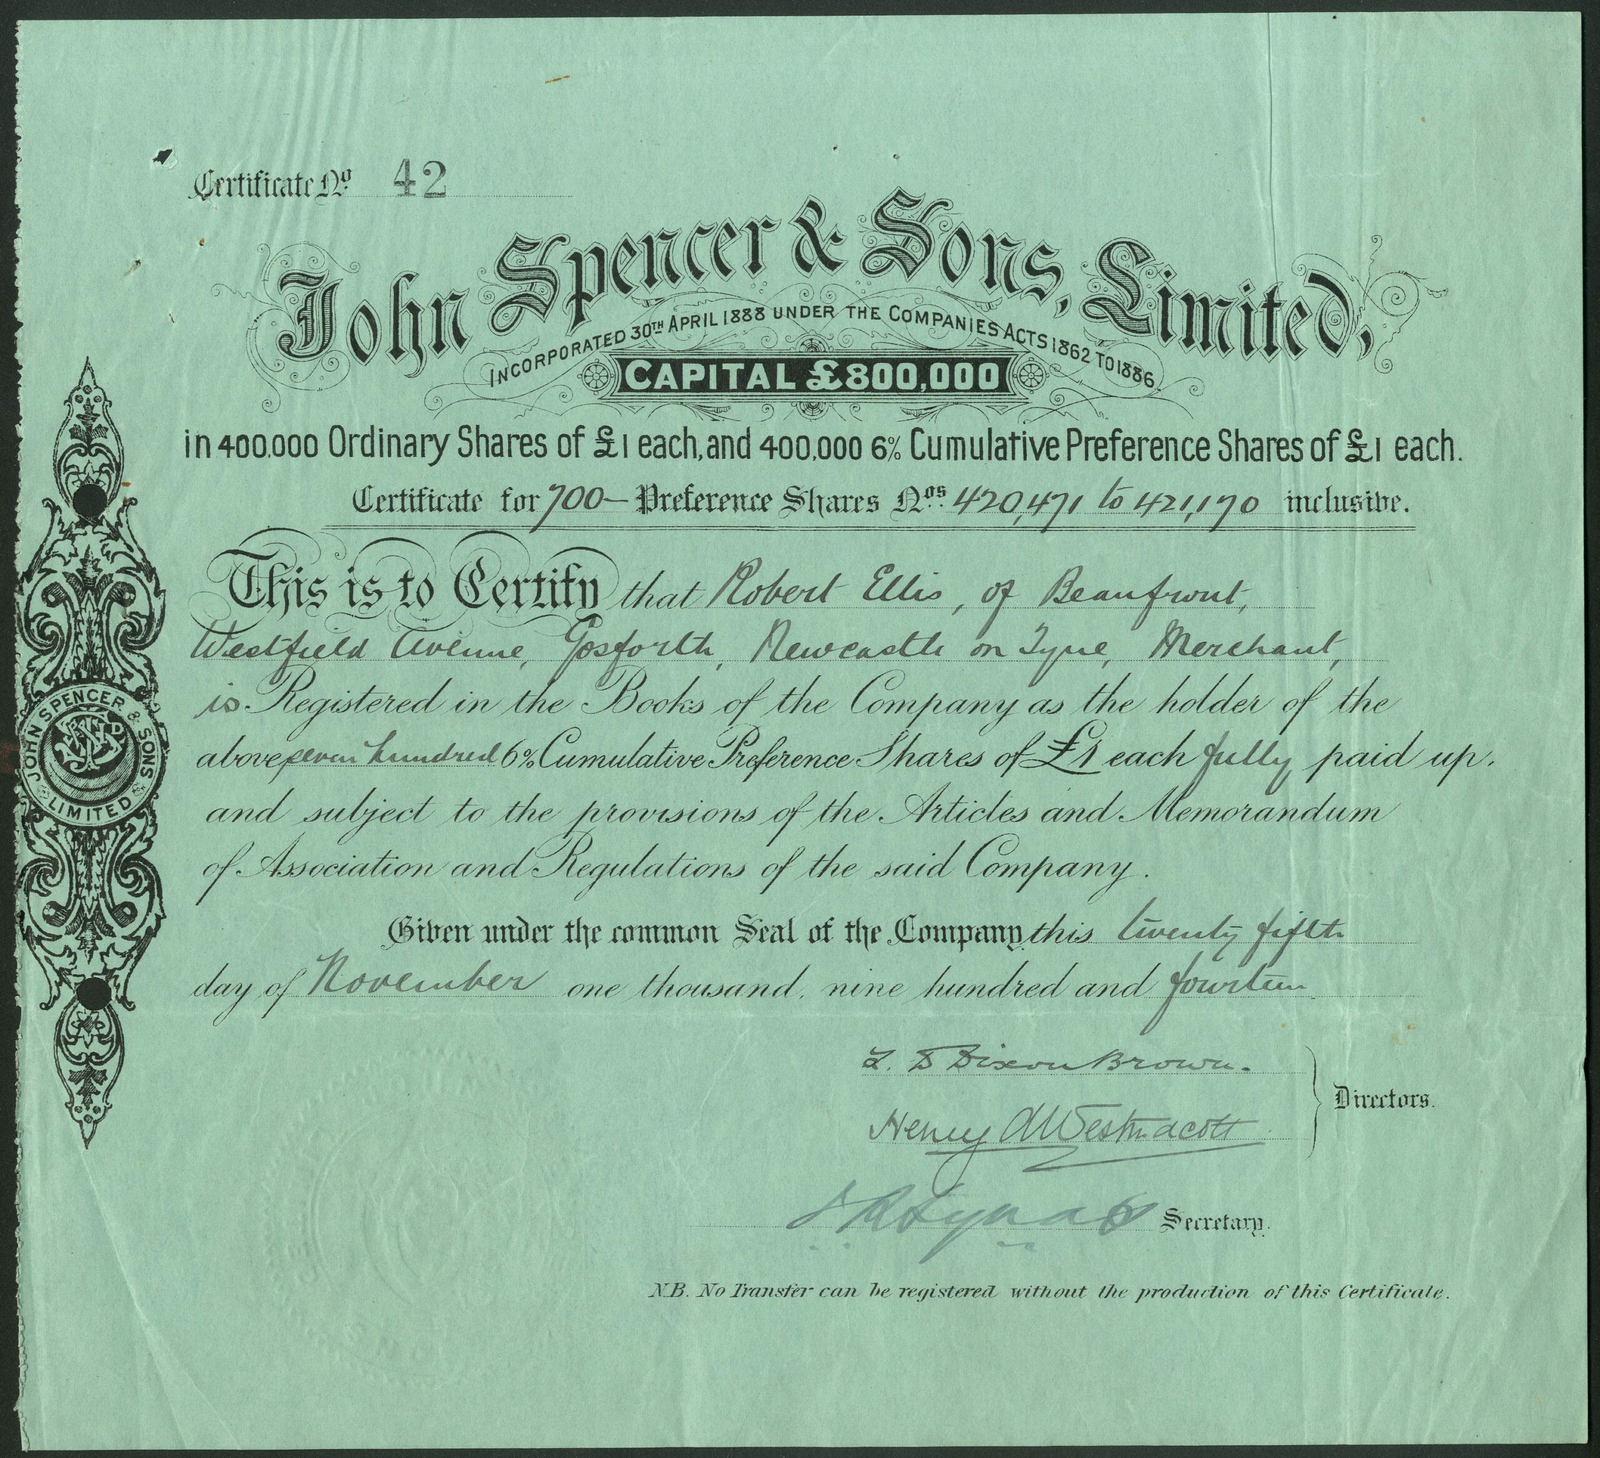 Certificate No 42
John Spencer & Sons, Limited,
INCORPORATED 30TH APRIL 1888 UNDER THE COMPANIES ACTS 1862 TO 1886.
CAPITAL £800,000
in 400,000 Ordinary Shares of £1 each, and 400,000 6% Cumulative Preference Shares of £1 each.
Certificate for 700— Preference Shares Nos. 420,471 to 421,170 inclusive.
This is to Certify that Robert Ellis, of Beaufront,
Westfield Avenue, Gosforth, Newcastle on Tyne, Merchant,
is Registered in the Books of the Company as the holder of the
above seven hundred 6% Cumulative Preference Shares of £1 each fully paid up.
and subject to the provisions of the Articles and Memorandum
of Association and Regulations of the said Company.
Given under the common Seal of the Company, this twenty fifth
day of November one thousand, nine hundred and fourteen
Dixon Brown.
Henry Westmacott
Directors.
Secretary.
N.B. No Transfer can be registered without the production of this Certificate.
JOHN SPENCER & SONS
LIMITED